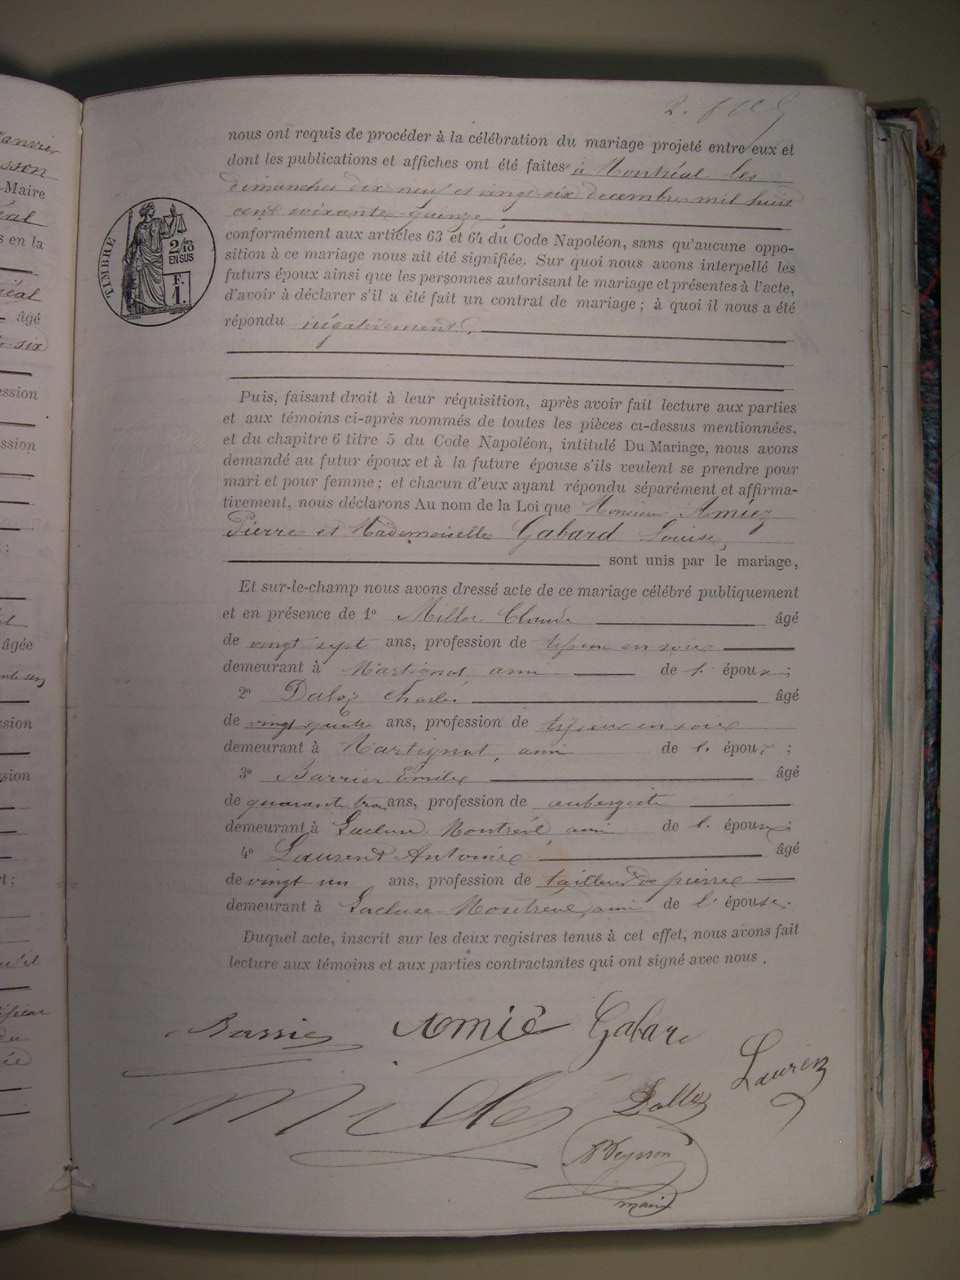 anvier
sson
Maire
éal
s en la
éal
âgé
six
ession
ession
âgée
ssion
nous ont requis de procéder à la célébration du mariage projeté entre eux et
dont les publications et affiches ont été faites à Montréal les
dimanches dix neuf et vingt six decembre mil huit
cent soixante quinze
conformément aux articles 63 et 64 du Code Napoléon, sans qu'aucune oppo-
sition à ce mariage nous ait été signifiée. Sur quoi nous avons interpellé les
futurs époux ainsi que les personnes autorisant le mariage et présentes à l'acte,
d'avoir à déclarer s'il a été fait un contrat de mariage ; à quoi il nous a été
répondu négativement.
TIMBRE
2/10
EN SUS
F.
1.
Puis, faisant droit à leur réquisition, après avoir fait lecture aux parties
et aux témoins ci-après nommés de toutes les pièces ci-dessus mentionnées,
et du chapitre 6 titre 5 du Code Napoléon, intitulé Du Mariage, nous avons
demandé au futur époux et à la future épouse s'ils veulent se prendre pour
mari et pour femme ; et chacun d'eux ayant répondu séparément et affirma-
tivement, nous déclarons Au nom de la Loi que Monsieur Amiez
Pierre et Mademoiselle Gabard Louise,
sont unis par le mariage,
Et sur-le-champ nous avons dressé acte de ce mariage célébré publiquement
et en présence de 1° Millet Claude âgé
de vingt sept ans, profession de tisseur en soie
demeurant à Martignat ami de l'époux ;
2° Daloz Charles âgé
de vingt quatre ans, profession de tisseur en soie
demeurant à Martignat, ami de l'époux ;
3° Barrier Emile âgé
de quarante trois ans, profession de aubergiste
demeurant à Lacluse Montréal ami de l'épouse ;
4° Laurent Antoine âgé
de vingt un ans, profession de tailleur de pierre
demeurant à Lacluse Montréal, ami de l'épouse.
Duquel acte, inscrit sur les deux registres tenus à cet effet, nous avons fait
lecture aux témoins et aux parties contractantes qui ont signé avec nous.
Amié Gabar
Lauren
Dalloz
maire